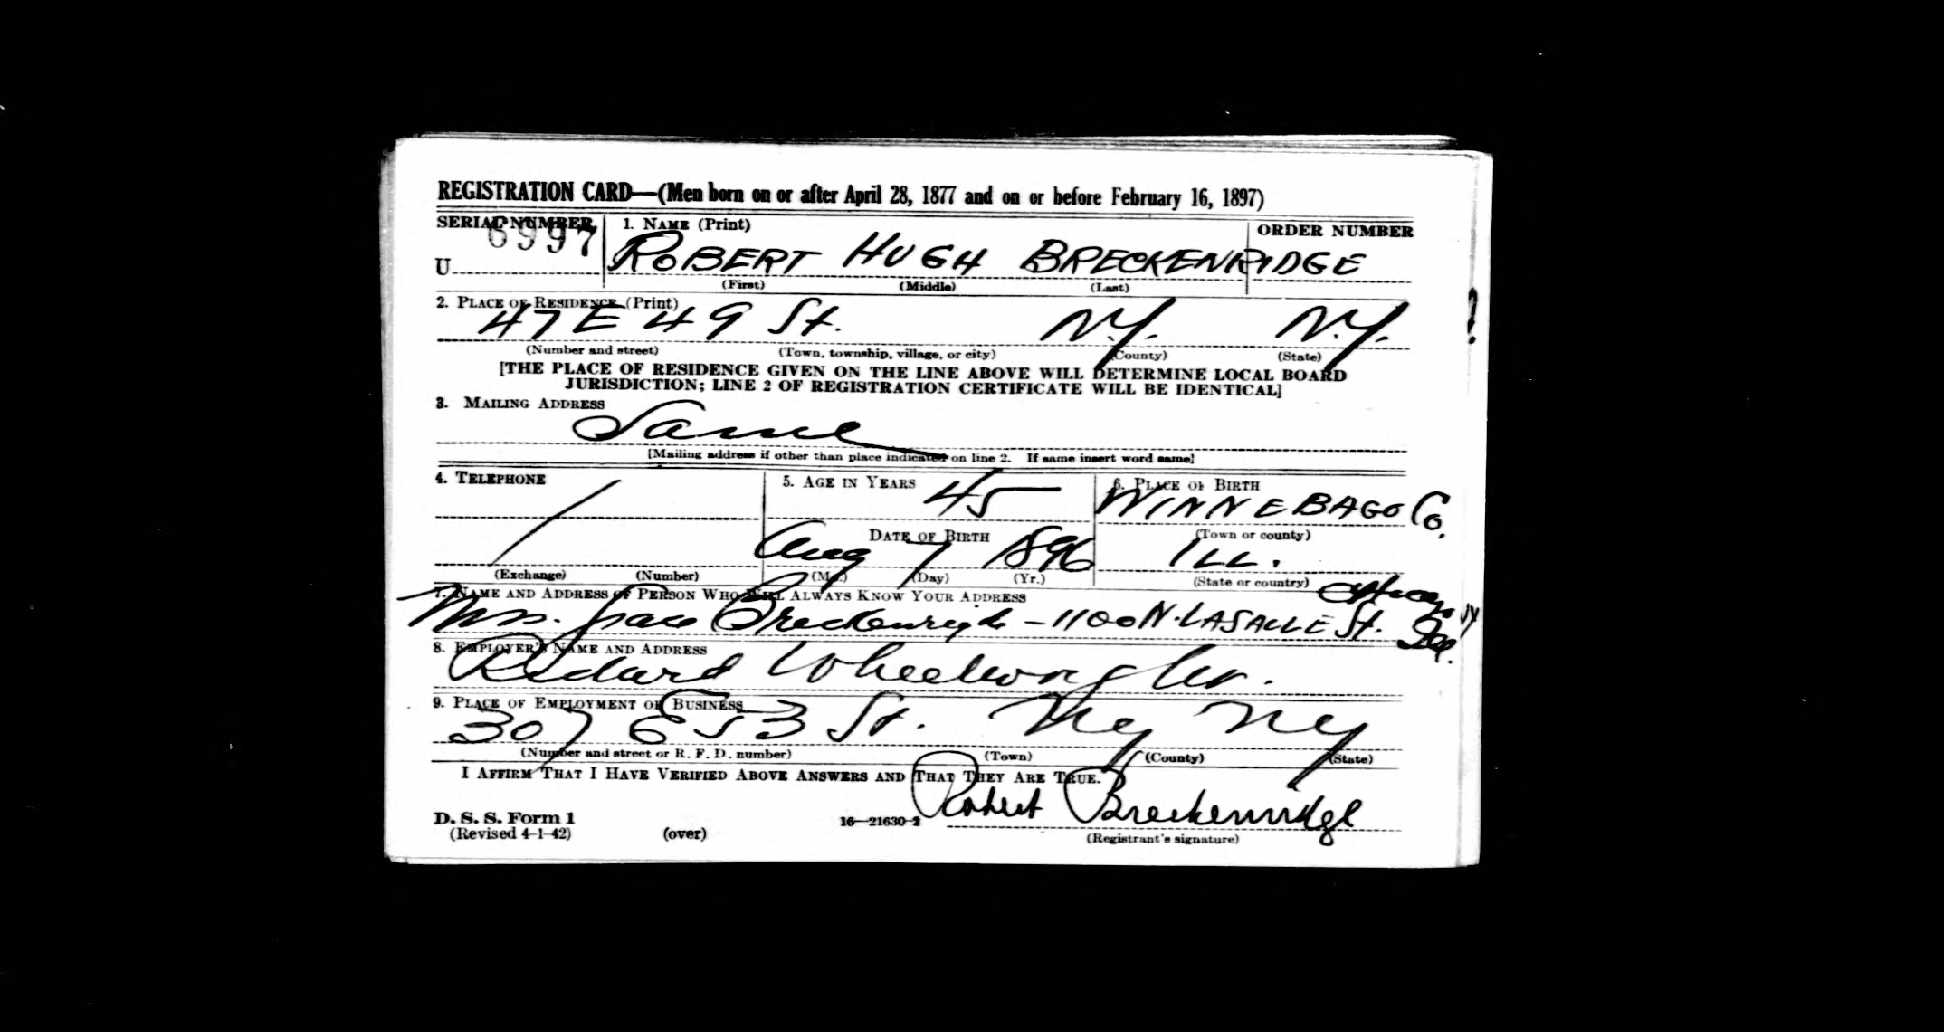 REGISTRATION CARD—(Men born on or after April 28, 1877 and on or before February 16, 1897)
SERIAL NUMBER 1. NAME (Print) ORDER NUMBER
6997
U ROBERT HUGH BRECKENRIDGE
(First) (Middle) (Last)
2. PLACE OF RESIDENCE (Print)
47 E 49 St. N.Y. N.Y.
(Number and street) (Town, township, village, or city) (County) (State)
[THE PLACE OF RESIDENCE GIVEN ON THE LINE ABOVE WILL DETERMINE LOCAL BOARD
JURISDICTION; LINE 2 OF REGISTRATION CERTIFICATE WILL BE IDENTICAL]
3. MAILING ADDRESS
Same
[Mailing address if other than place indicated on line 2. If same insert word same]
4. TELEPHONE 5. AGE IN YEARS 6. PLACE OF BIRTH
45 WINNEBAGO Co.
DATE OF BIRTH (Town or county)
Aug 7 1896 ILL.
(Exchange) (Number) (Mo.) (Day) (Yr.) (State or country)
7. NAME AND ADDRESS OF PERSON WHO WILL ALWAYS KNOW YOUR ADDRESS
Mrs. Grace Breckenridge - 1100 N. LASALLE St.
8. EMPLOYER'S NAME AND ADDRESS
9. PLACE OF EMPLOYMENT OR BUSINESS
307 E 53 St. NY NY
(Number and street or R. F. D. number) (Town) (County) (State)
I AFFIRM THAT I HAVE VERIFIED ABOVE ANSWERS AND THAT THEY ARE TRUE.
Robert Breckenridge
D. S. S. Form 1 16—21630-2
(Revised 4-1-42) (over) (Registrant's signature)